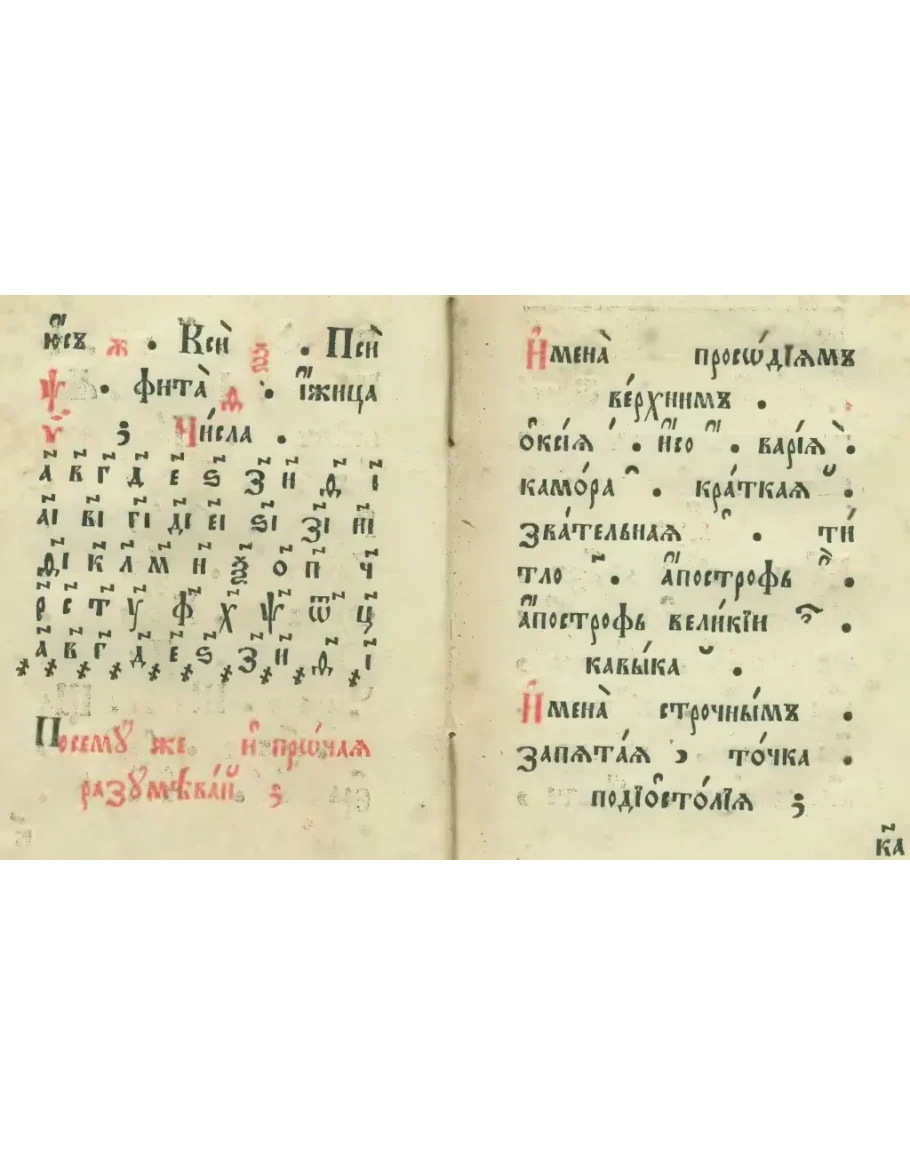 ю҆́съ ѫ . Ксѝ ѯ . Псѝ
ѱ . фита̀ ѳ . і҆́жица
ѵ ; Чи́сла .
а҃ в҃ г҃ д҃ е҃ ѕ҃ з҃ и҃ ѳ҃ і҃
а҃і в҃і г҃і д҃і е҃і ѕ҃і з҃і и҃і
ѳ҃і к҃ л҃ м҃ н҃ ѯ҃ о҃ п҃ ч҃
р҃ с҃ т҃ у҃ ф҃ х҃ ѱ҃ ѿ҃ ц҃
҂а҃ ҂в҃ ҂г҃ ҂д҃ ҂е҃ ҂ѕ҃ ҂з҃ ҂и҃ ҂ѳ҃ ҂і҃
Посемꙋ́ же и҆ прѡ́чаѧ
разꙋмѣва́й ;
И҆мена̀ просѡді́ѧмъ
ве́рхнимъ .
ѻ҆кси́ѧ ́ . и҆со ҆ . варі́ѧ ̀ .
камо́ра ̑ . кра́ткаѧ ̆ .
зва́тельнаѧ ҆ . ти́
тло ҃ . а҆по́строфъ ҆̀ .
а҆по́строфъ вели́кїи ҆̑ .
кавы́ка ̆ .
И҆мена̀ стро́чнымъ .
запѧта́ѧ , то́чка .
подїѻсто́лїѧ ;
к҃а